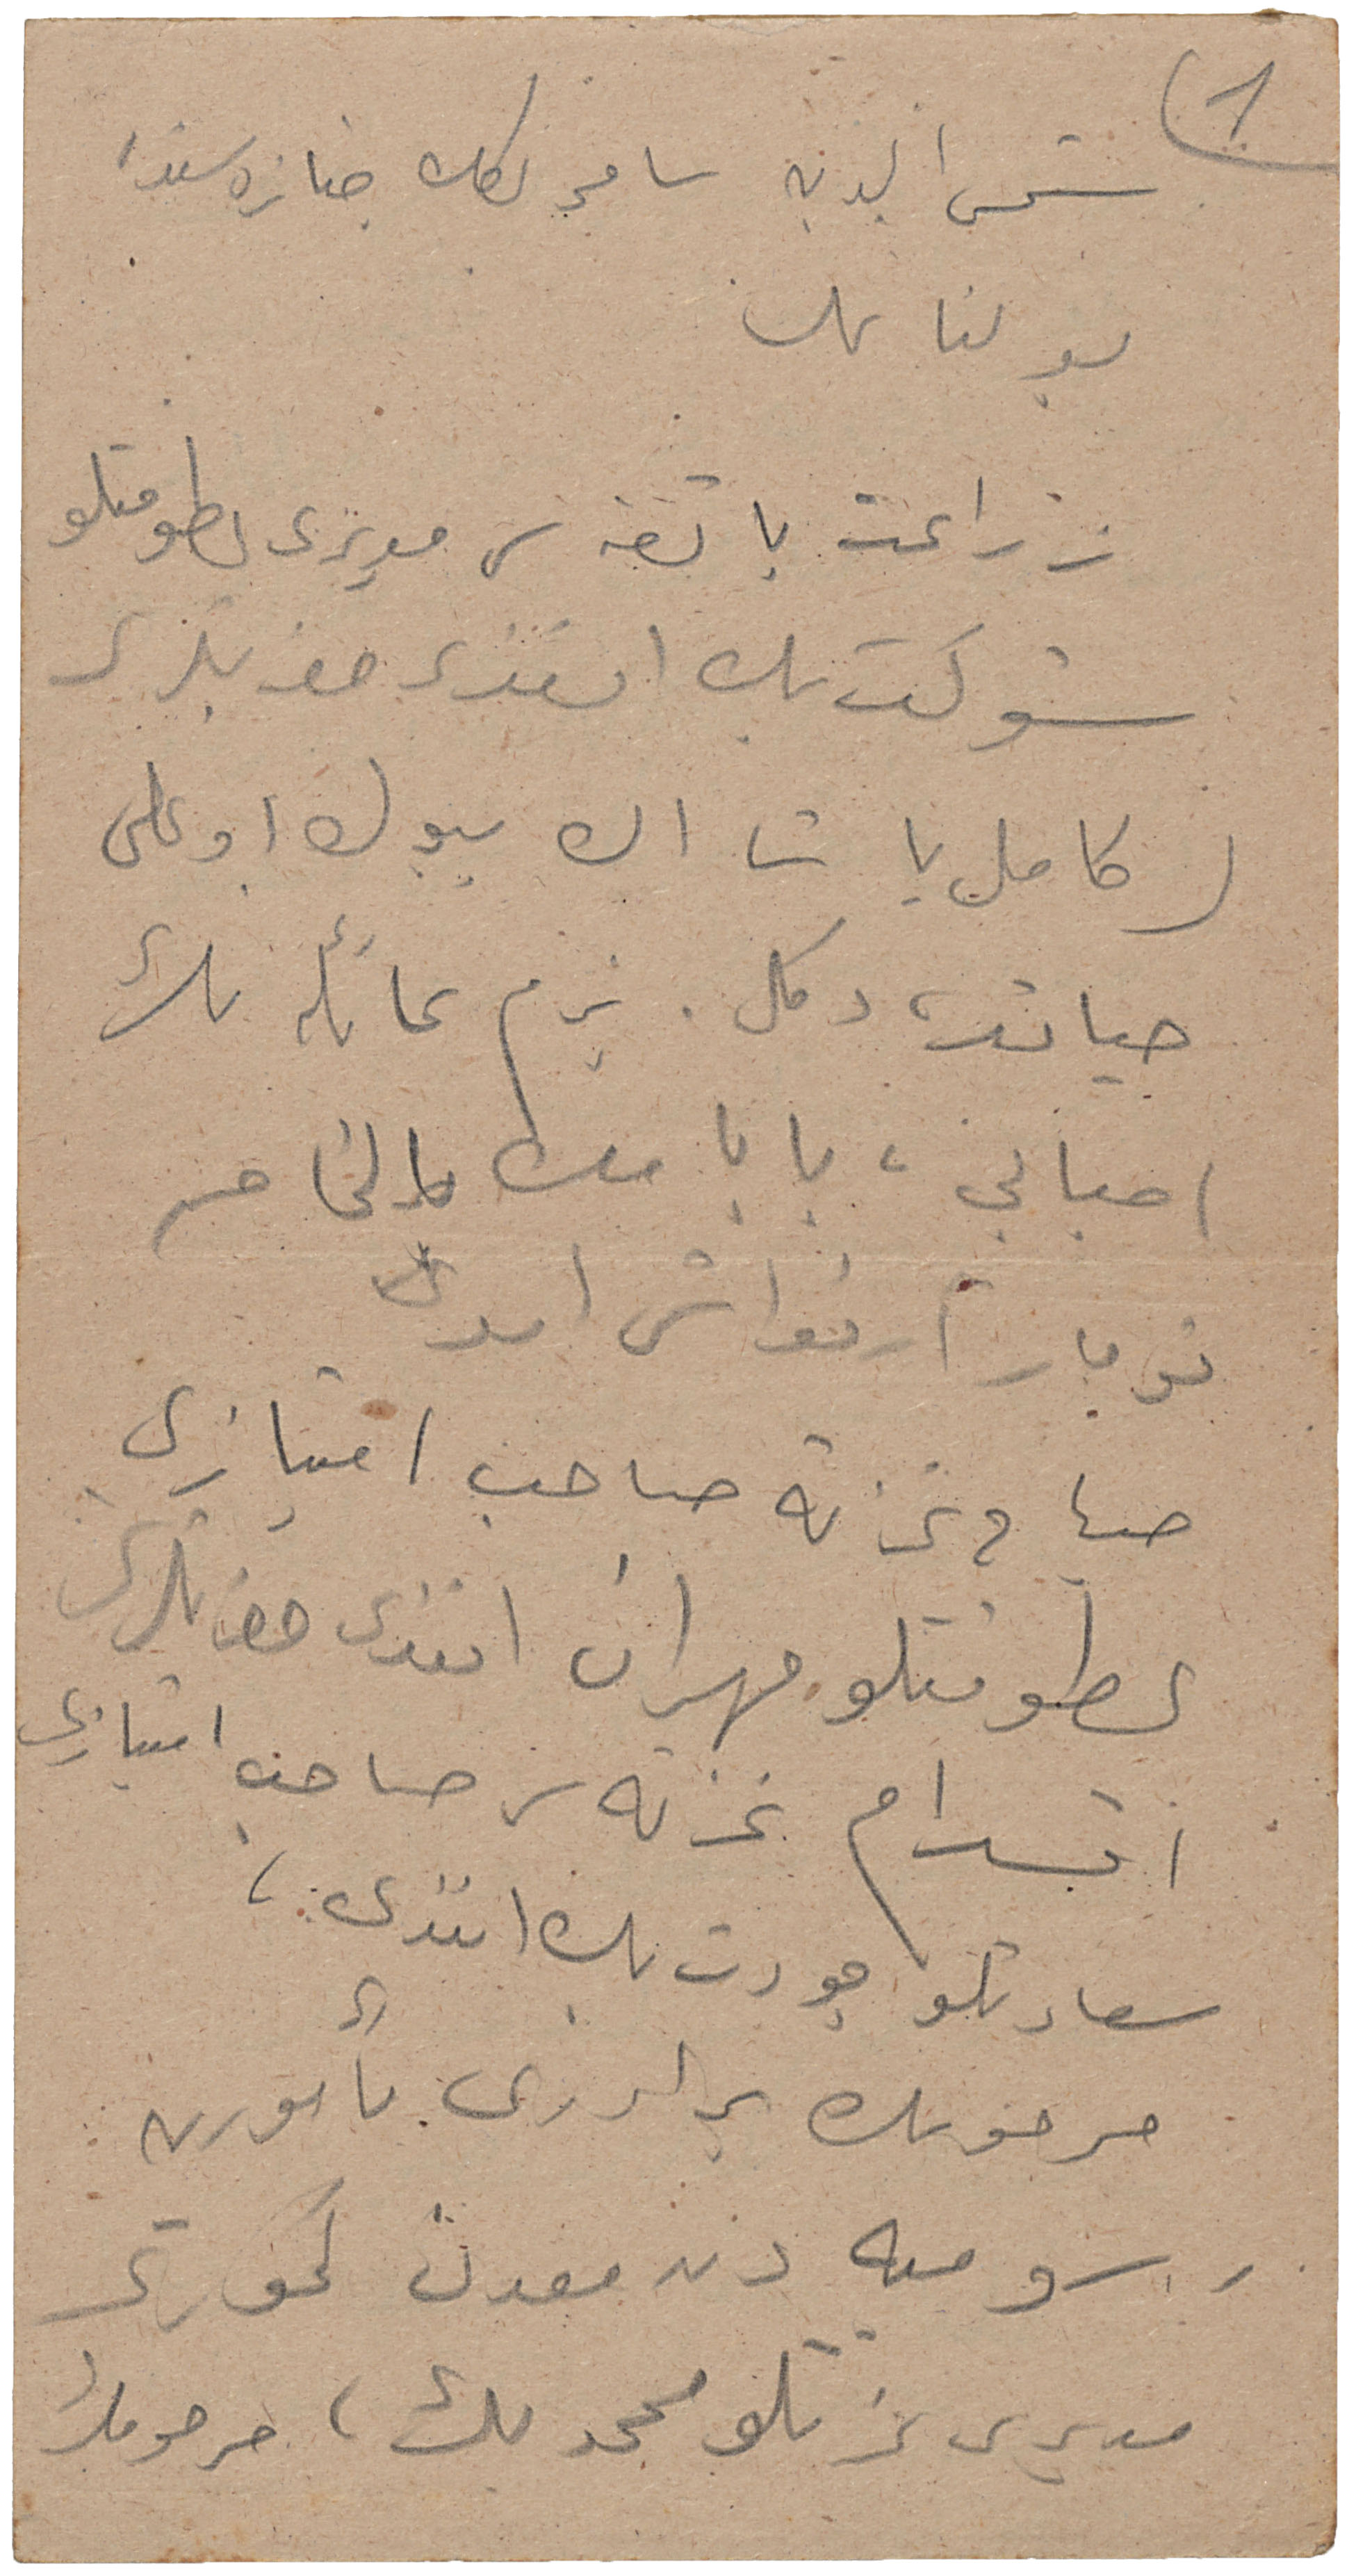 ١
شمس الدین سامی بكك جنازه سنده
بولنانلر
زراعت بانقه سی مدیری عطوفتلو
شوكت بك افندی حضرتلری
(كامل پاشا نك بیوك اوغلی
حیاتده دكل. بزم عائله نك
احبابی، بابامك
قومار آرقداشی ایدی
صباح غزته صاحب امتیازی
عطوفتلو مهران افندی حضرتلری
اقدام غزته سی صاحب امتیازی
سعادتلو جودت بك افندی،
مرحومك برادری مأمورین
رسومیه دن معدن كموری
مدیری عزتلو محمد بك، مرحومك